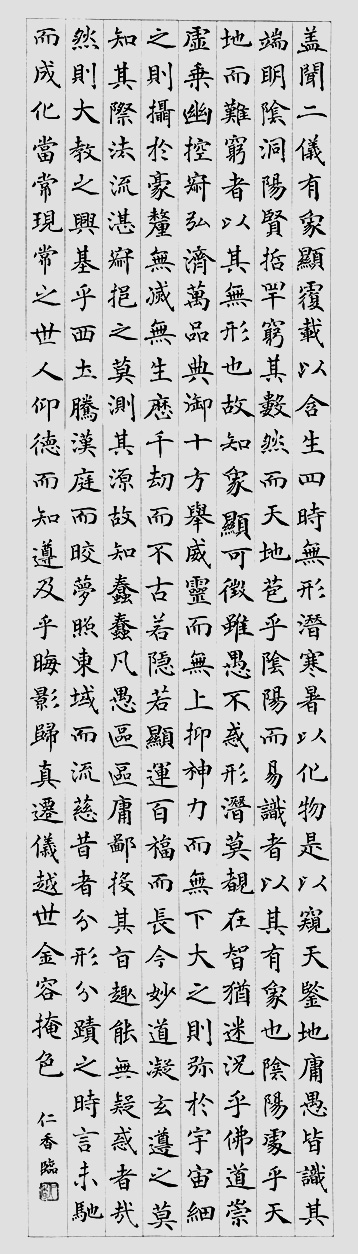 盖聞二儀有象顯覆載以含生四時無形潛寒暑以化物是以窺天鑒地庸愚皆識其
端明陰洞陽賢哲罕窮其數然而天地苞乎陰陽而易識者以其有象也陰陽處乎天
地而難窮者以其無形也故知象顯可徵雖愚不惑形潛莫覩在智猶迷況乎佛道崇
虛乘幽控寂弘濟萬品典御十方舉威靈而無上抑神力而無下大之則弥於宇宙細
之則攝於豪釐無滅無生歷千劫而不古若隱若顯運百福而長今妙道凝玄遵之莫
知其際法流湛寂挹之莫測其源故知蠢蠢凡愚區區庸鄙投其旨趣能無疑惑者哉
然則大教之興基乎西土騰漢庭而皎夢照東域而流慈昔者分形分蹟之時言未馳
而成化當常現常之世人仰德而知遵及乎晦影歸真遷儀越世金容掩色
仁香臨